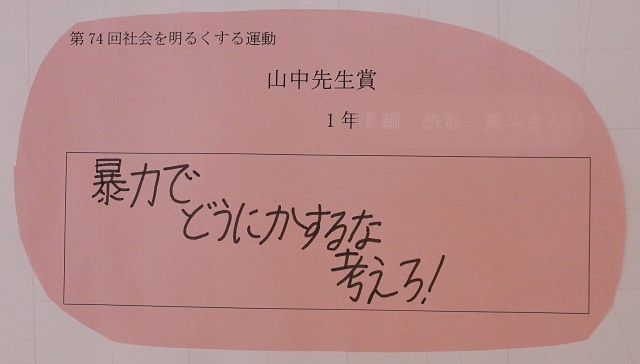 第74回社会を明るくする運動
山中先生賞
1年
暴力で
どうにかするな
考えろ!